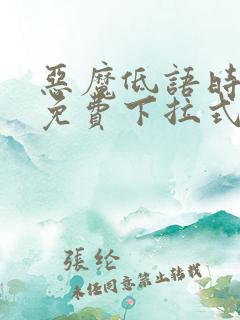 惡魔低語時
免費下拉式
張纶
未经同意禁止转载